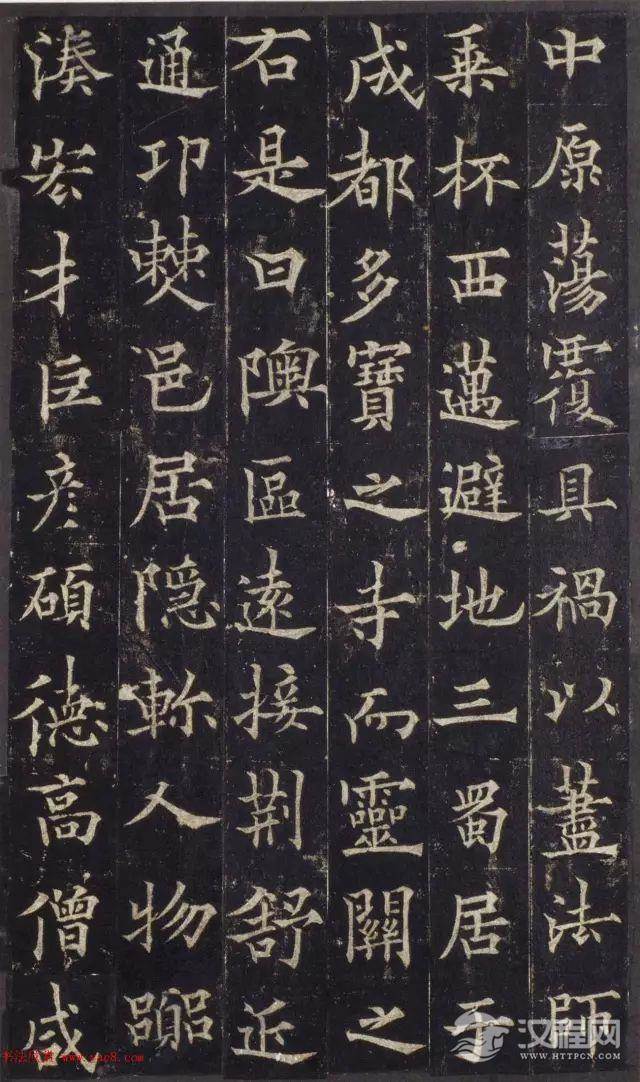 中原蕩覆具禍以藎法師
乗杯西邁避地三蜀居于
成都多寶之寺而靈關之
右是曰隩區遠接荊舒近
通邛僰邑居隱軫人物嚻
湊宏才巨彦碩德高僧咸
书法欣赏 www.yac8.com
汉程网
HTTP://WWW.HTTPCN.COM